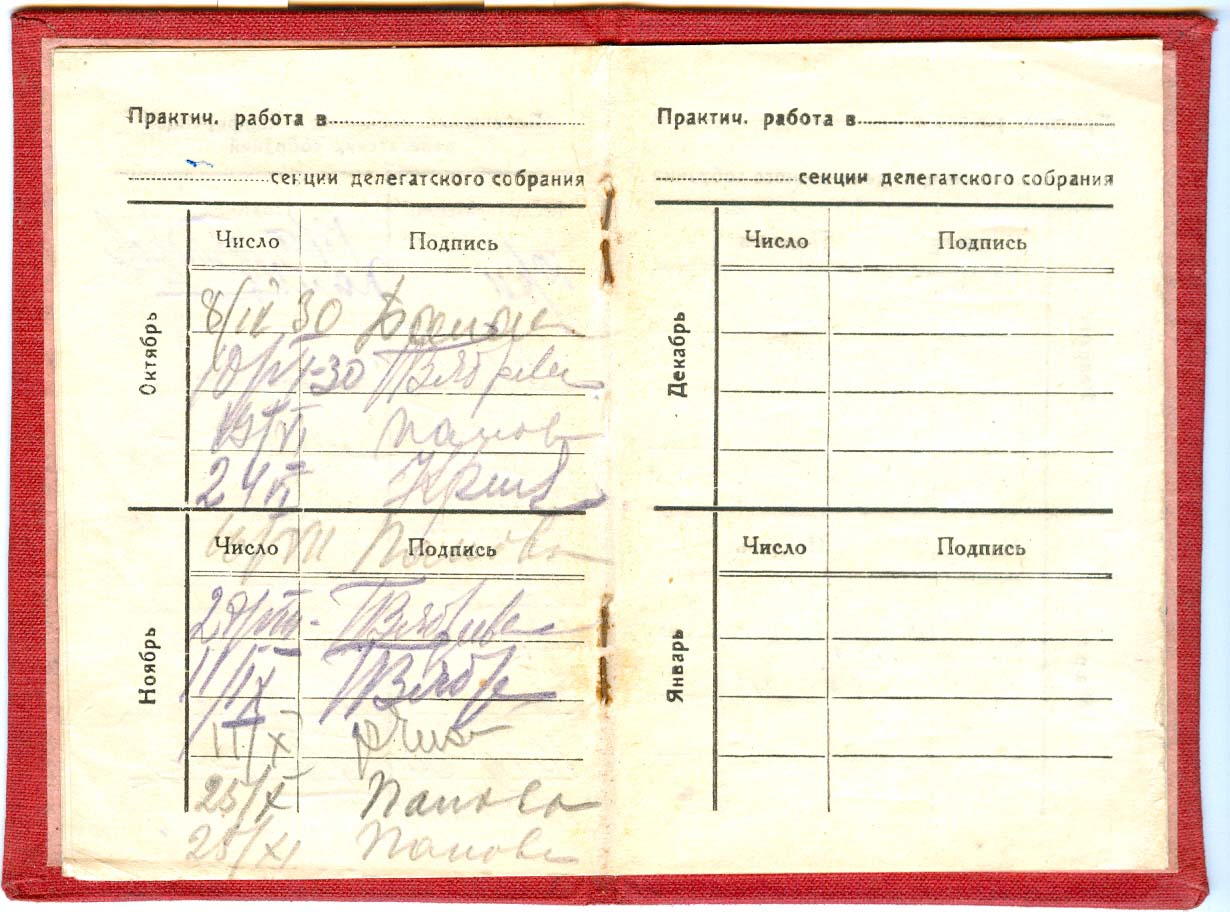 Практич. работа в
секции делегатского собрания
Число Подпись
Октябрь
8/IV 30
10/VI-30
19/VI Панова
24/VI
Число Подпись
/VII Панова
Ноябрь
28/VIII-
11/IX
11/X
25/X Панова
25/XI Панова
Практич. работа в
секции делегатского собрания
Число Подпись
Декабрь
Число Подпись
Январь